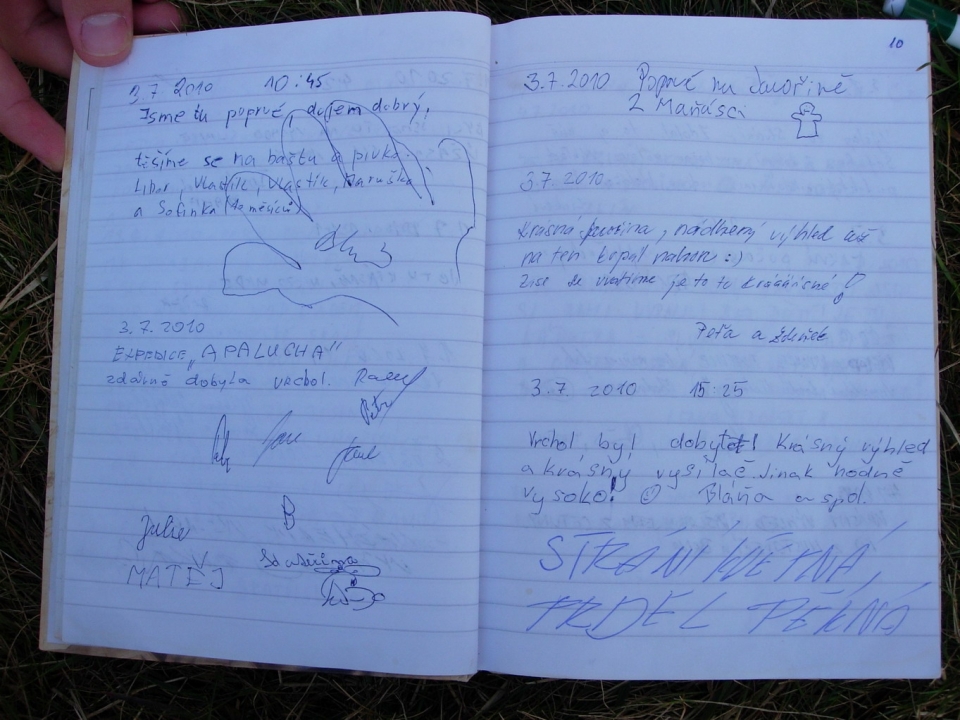 3.7 2010 10:45
Jsme tu poprvé, dojem dobrý,
těšíme se na baštu a pivko.
Libor, Vlastík, Vlastík, Maruška
a Sofinka
3.7.2010
EXPEDICE "APALUCHA"
zdárně dobyla vrchol.
Julie
B
MATĚJ
10
3.7.2010 Poprvé na Javořině
2 Maňásci
3.7.2010
Krásná Javořina, nádherný výhled
na ten kopál nahoru :)
je to tu krááásné!
Peťa a Zdeněk
3.7. 2010 15:25
Vrchol byl dobytt! Krásný výhled
a krásný vysílač. Jinak hodně
vysoko! Bláňa a spol.
STRÁNÍ KVĚTNÁ,
PRDEL PĚKNÁ